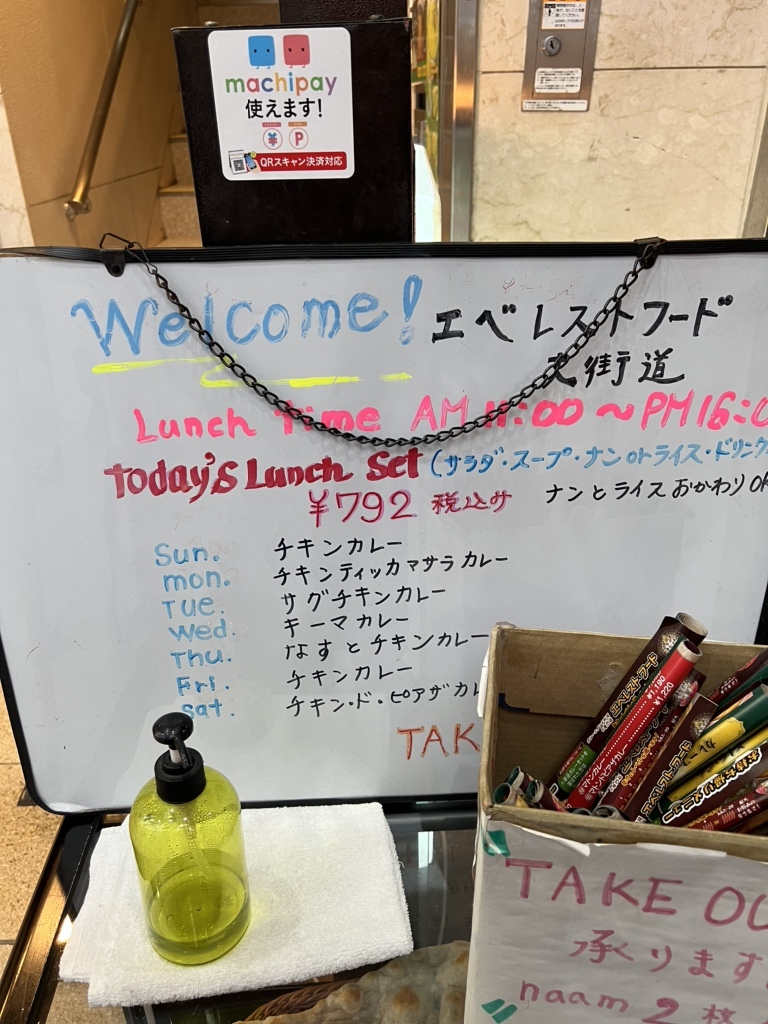 machipay
使えます!
¥ P
QRスキャン決済対応
Welcome! エベレストフード
大街道
Lunch time AM 11:00 ~ PM 16:0
Today's Lunch Set (サラダ・スープ・ナン orライス・ドリンク
¥792 税込み ナンとライスおかわりOK
Sun. チキンカレー
mon. チキンティッカマサラカレー
Tue. サグチキンカレー
Wed. キーマカレー
Thu. なすとチキンカレー
Fri. チキンカレー
sat. チキン・ド・ピアザカレ
TAK
エベレストフード
¥1,190
¥1,220
マトンカレー
マトンピアザカレー
エベレストフード
TAKE OU
承ります
naam 2 枚